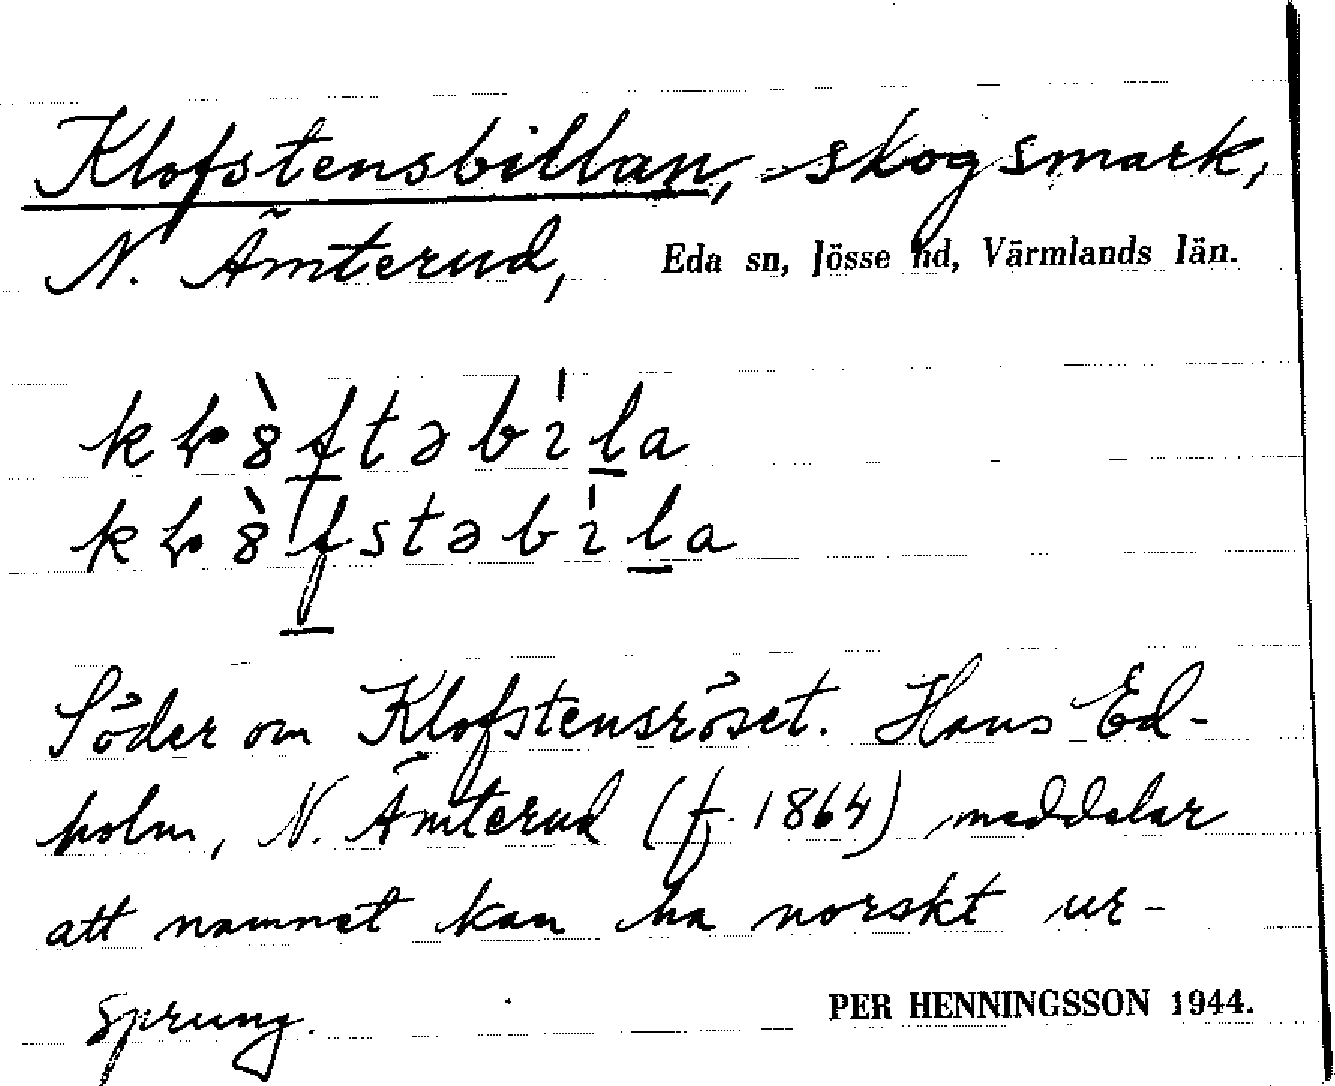 Klofstensbillan, skogsmark,
N. Ämterud, Eda sn, Jösse hd, Värmlands län.
Söder om Klofstensröset. Hans Ed-
holm, N. Ämterud (f. 1864) meddelar
att namnet kan ha norskt ur-
sprung.
PER HENNINGSSON 1944.